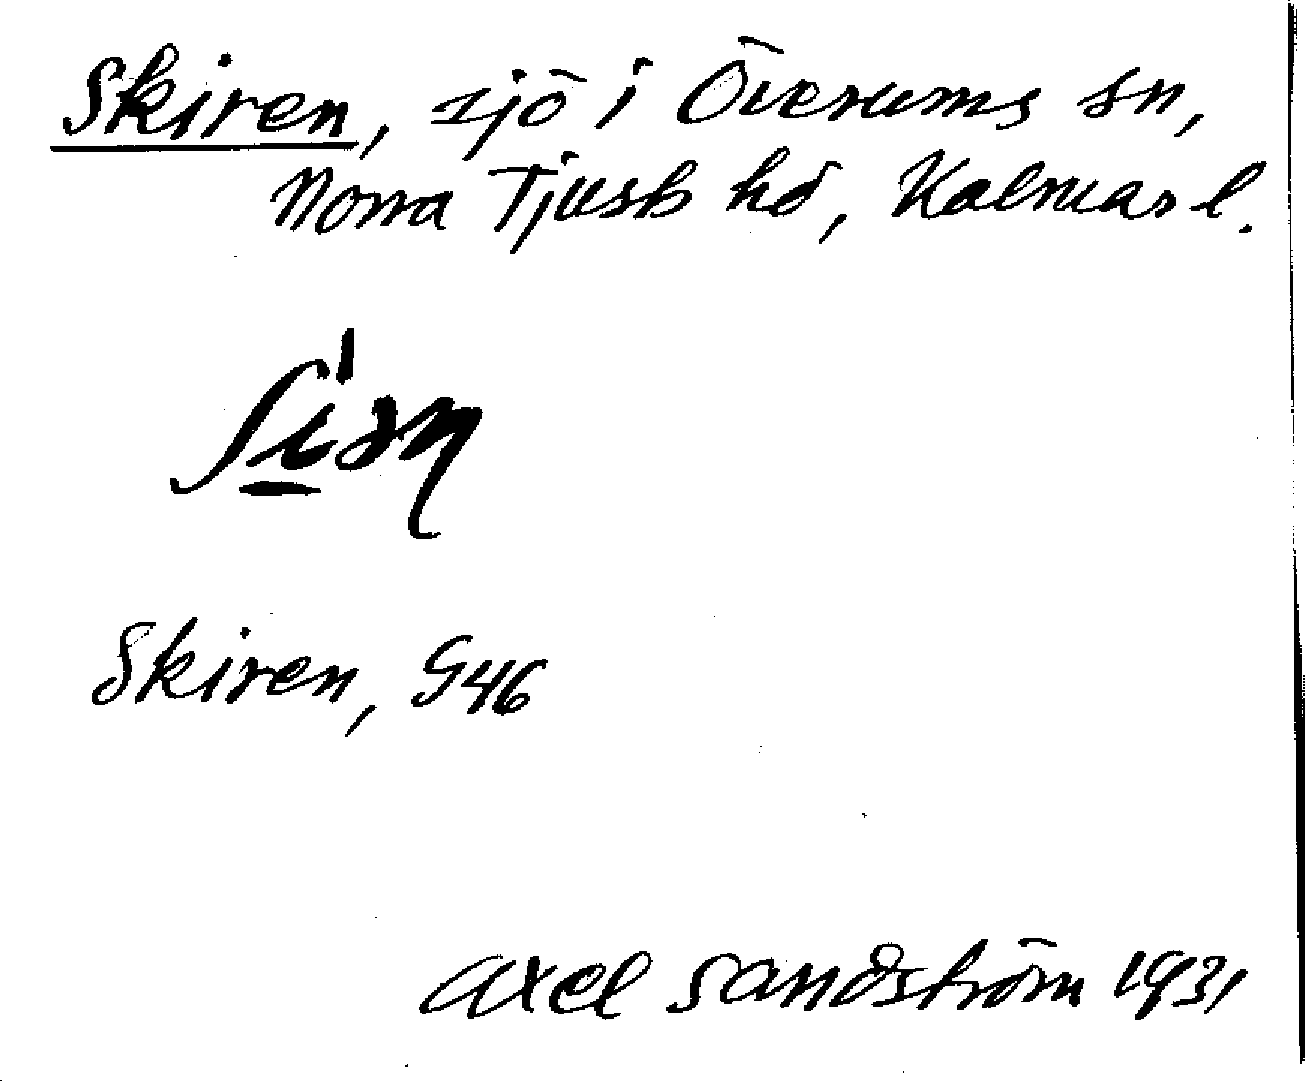 Skiren, sjö i Överums sn,
Norra Tjusts hd, Kalmar l.
Skiren, G46
Axel Sandström 1931